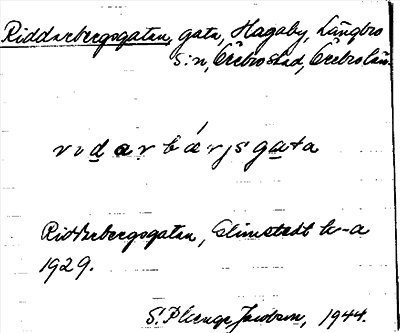 Riddarbergsgatan, gata, Hagaby, Längbro
s:n, Örebro stad, Örebro län.
rıdarbárjsgata
Riddarbergsgatan, Almstedt
1929.
S. Plenge Jacobsen, 1944.